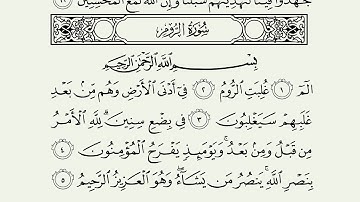 جَٰهَدُوا۟ فِينَا لَنَهْدِيَنَّهُمْ سُبُلَنَا ۚ وَإِنَّ ٱللَّهَ لَمَعَ ٱلْمُحْسِنِينَ ٦٩
سُورَةُ الرُّومِ
بِسْمِ ٱللَّهِ ٱلرَّحْمَٰنِ ٱلرَّحِيمِ
الٓمٓ ١ غُلِبَتِ ٱلرُّومُ ٢ فِىٓ أَدْنَى ٱلْأَرْضِ وَهُم مِّنۢ بَعْدِ
غَلَبِهِمْ سَيَغْلِبُونَ ٣ فِى بِضْعِ سِنِينَ ۗ لِلَّهِ ٱلْأَمْرُ
مِن قَبْلُ وَمِنۢ بَعْدُ ۚ وَيَوْمَئِذٍ يَفْرَحُ ٱلْمُؤْمِنُونَ ٤
بِنَصْرِ ٱللَّهِ ۚ يَنصُرُ مَن يَشَآءُ ۖ وَهُوَ ٱلْعَزِيزُ ٱلرَّحِيمُ ٥